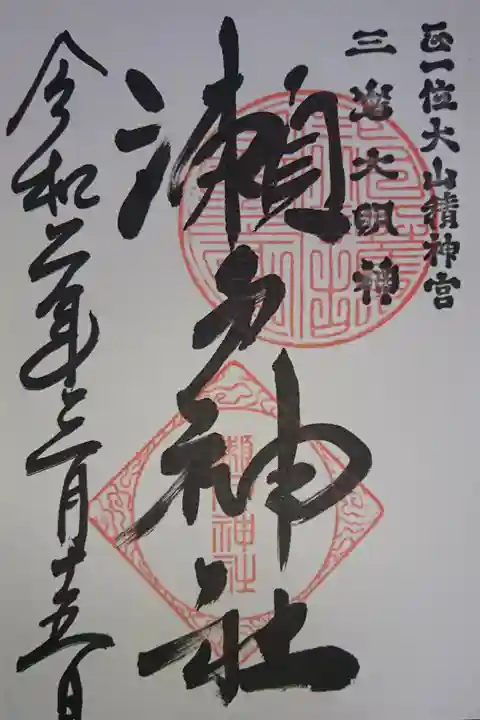 正一位大山積神宮
三嶌大明神
瀬戸神社
瀬戸神社
令和二年十二月十五日